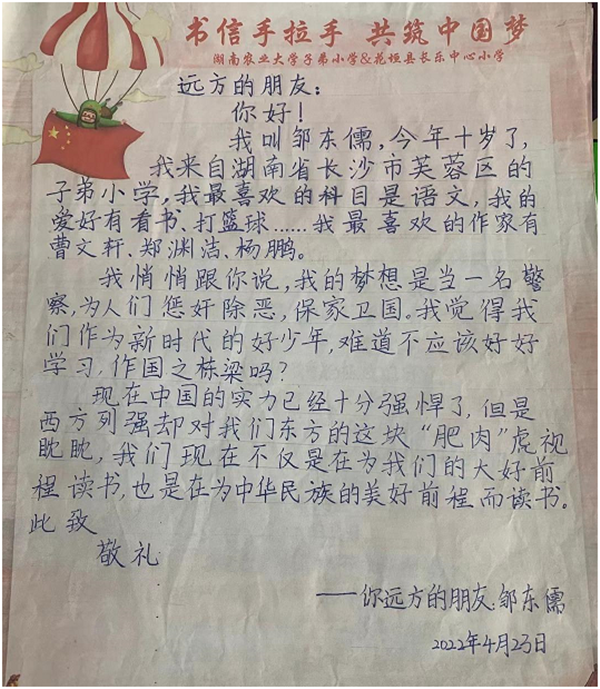 书信手拉手 共筑中国梦
湖南农业大学子弟小学&花垣县长乐中心小学
远方的朋友：
你好！
我叫邹东儒，今年十岁了，
我来自湖南省长沙市芙蓉区的
子弟小学，我最喜欢的科目是语文，我的
爱好有看书、打篮球……我最喜欢的作家有
曹文轩、郑渊洁、杨鹏。
我悄悄跟你说，我的梦想是当一名警
察，为人们惩奸除恶，保家卫国。我觉得我
们作为新时代的好少年，难道不应该好好
学习，作国之栋梁吗？
现在中国的实力已经十分强悍了，但是
西方列强却对我们东方的这块“肥肉”虎视
眈眈，我们现在不仅是在为我们的大好前
程读书，也是在为中华民族的美好前程而读书。
此致
敬礼
——你远方的朋友：邹东儒
2022年4月23日